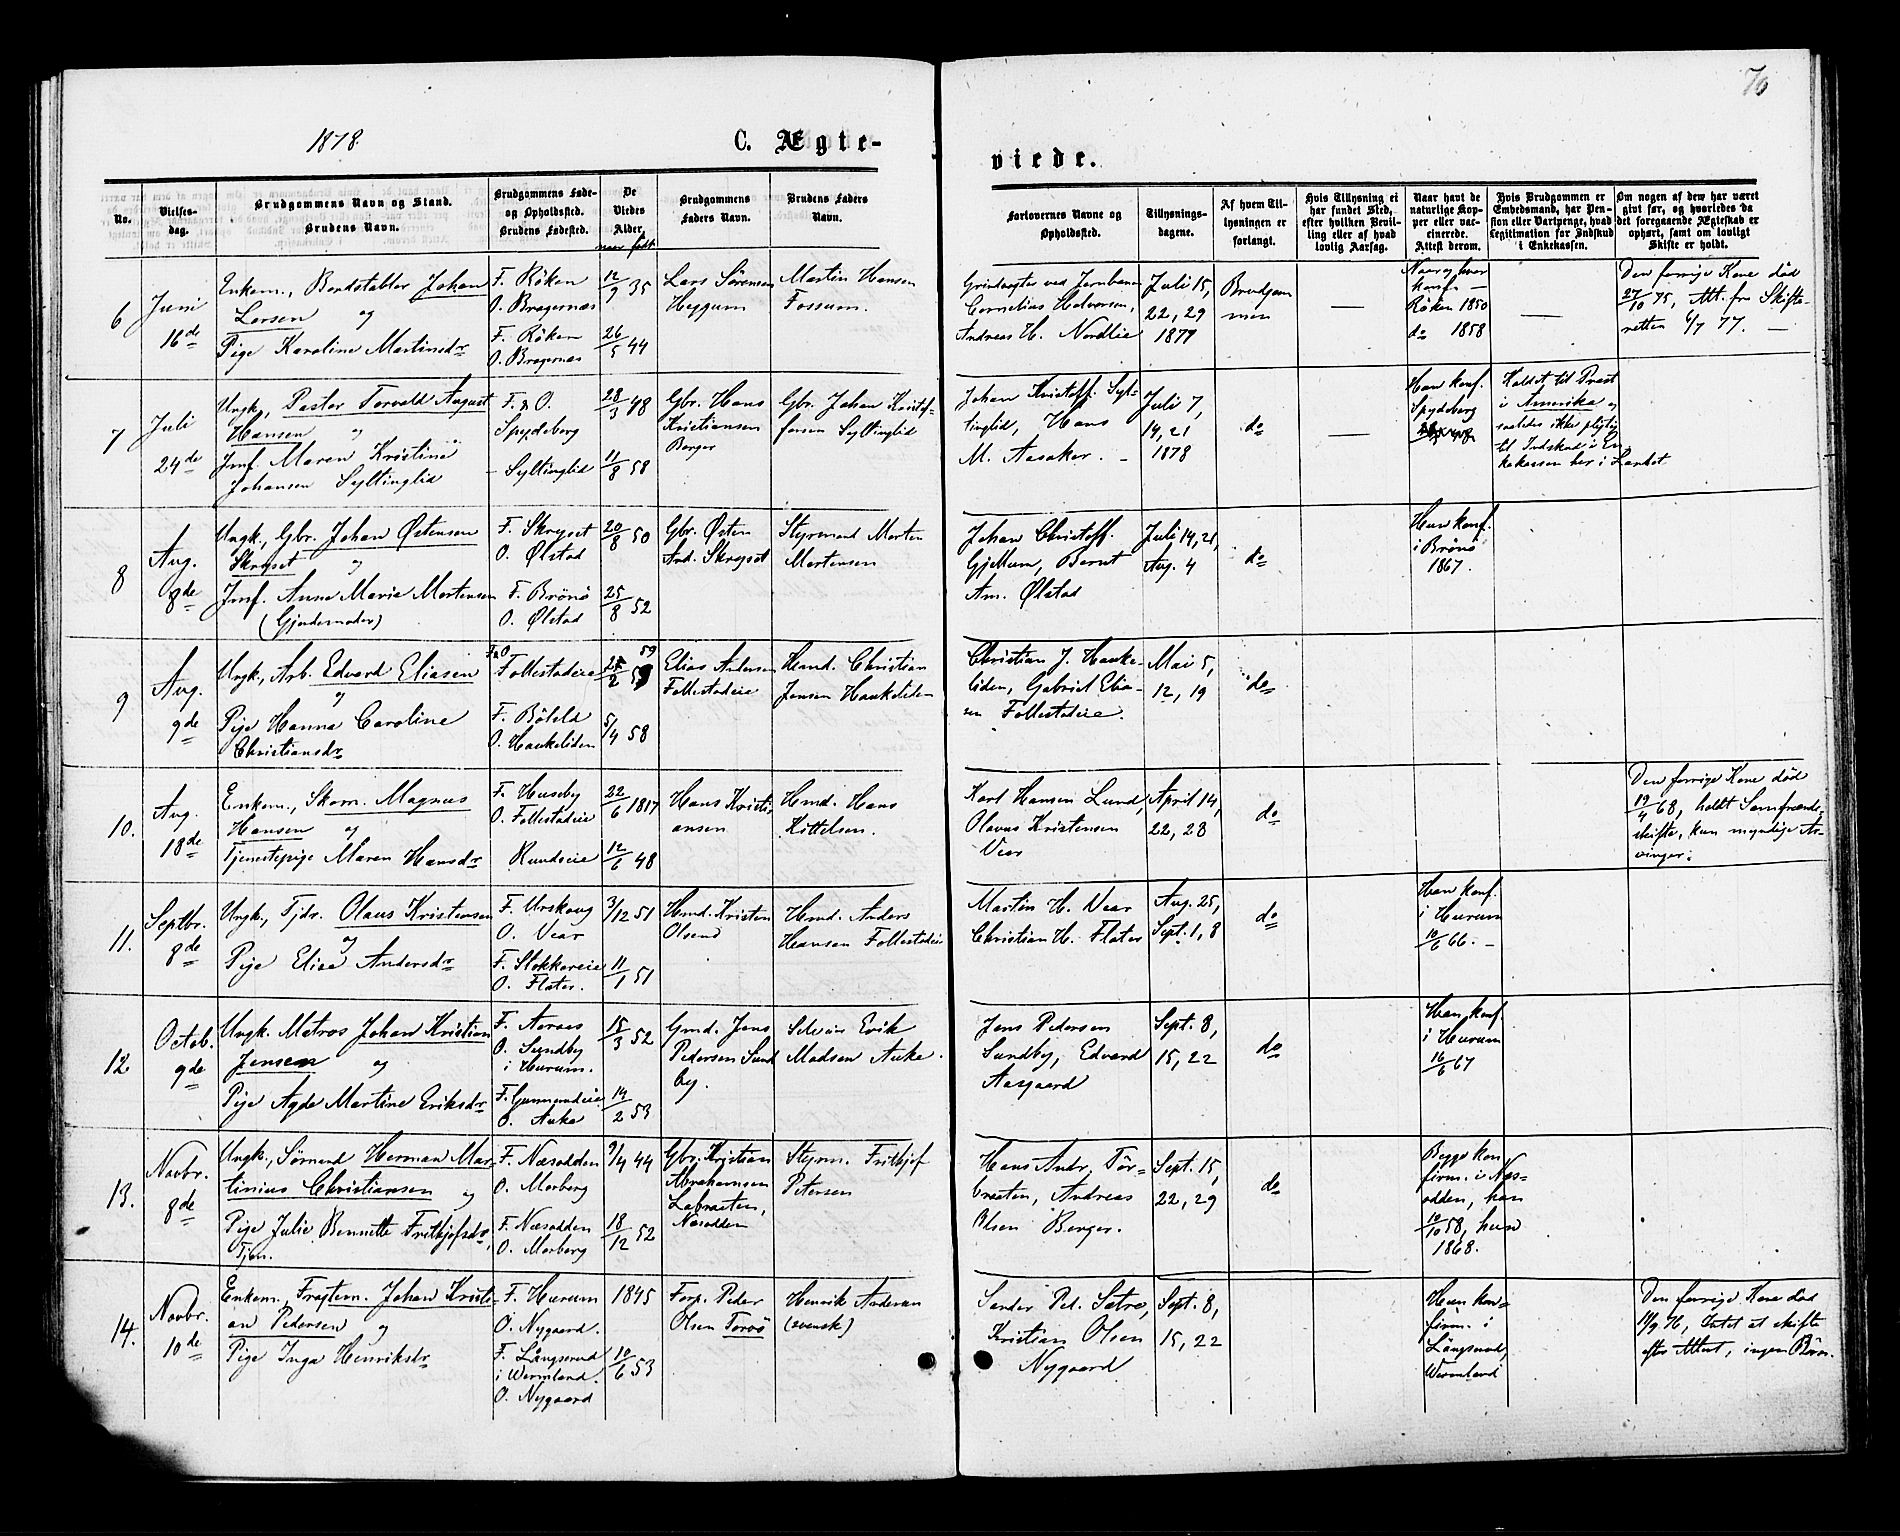 76
1878.
C. Ægte-
viede.
No.
Vielses-
dag.
Brudgommens Navn og Stand.
Brudens Navn.
Brudgommens Føde-
og Opholdssted.
Brudens Fødested.
De
Viedes
Alder.
naar født
Brudgommens
Faders Navn.
Brudens Faders
Navn.
Forlovernes Navne og
Opholdssted.
Tillysnings-
dagene.
Af hvem Til-
lysningen er
forlangt.
Hvis Tillysning ei
har fundet Sted,
efter hvilken Bevil-
ling eller af hvad
lovlig Aarsag.
Naar havt de
naturlige Kop-
per eller vac-
cinerede.
Attest derom.
Hvis Brudgommen er
Embedsmand, har Pen-
sion eller Vartpenge, hvad
Legitimation for Indskud
i Enkekassen.
Om nogen af dem har været
givt før, og hvorledes da
det foregaaende Ægteskab er
ophørt, samt om lovligt
Skifte er holdt.
6
Juni
16de
Enkem., Bordstabler Johan
Larsen og
Pige Karoline Martinsdr
F. Röken
O. Bragernæs
F. Röken
O. Bragernæs
12/9 35
26/5 44
Lars Sörensen
Heggum
Martin Hansen
Fossum.
Cornelius Halvorsen,
Andreas H. Nordlie
Juli 15,
22, 29
1877
Brudgom
men
—
Röken 1850
do 1858
—
Den forrige Kone död
27/10 75, Att. fra Skifte-
retten 6/7 77. —
7
Juli
24de
Ungk., Pastor Torvald August
Hansen og
Jmf. Maren Kristine
Johansen Syltinglid
F. & O.
Spydeberg
- Syltinglid
28/3 48
11/8 58
Gbr. Hans
Kristiansen
Berger
Gbr. Johan Kristof-
fersen Syltinglid
Johan Kristoff. Syl-
tinglid, Hans
M. Aasaker. -
Juli 7,
14, 21
1878
do
—
Han konf.
Spydeberg
Kaldet til Præst
i Amerika og
saaledes ikke pligtig
til Indskud i En-
kekassen her i Landet
8
Aug.
8de
Ungk., Gbr. Johan Østensen
Skryset og
Jmf. Anne Marie Mortensen
(Gjordemoder)
F. Skryset
O. Ølstad
F. Brönö
O. Ølstad
20/8 50
25/8 52
Gbr. Østen
And. Skryset
Styrmand Morten
Mortensen
Johan Christoff.
Gjellum, Bernt
Am. Ølstad
Juli 14, 21,
Aug. 4
do
Hun konf.
i Brönö
1867.
9
Aug.
9de
Ungk., Arb. Edvard Eliasen
og
Pige Hanna Caroline
Christiansdr
F&O
Follestadeie
F. Böleld
O. Haukeliden
59
5/4 58
Elias Andersen
Follestadeie
Hmd. Christian
Jensen Haukeliden
Christian J. Hauke-
liden, Gabriel Elia-
sen Follestadeie.
Mai 5,
12, 19
do
10.
Aug.
18de
Enkem., Skom. Magnus
Hansen og
Tjenestepige Maren Hansdr
F. Huseby
O. Follestadeie
Rundseie
22/6 1817
12/6 48
Hans Kristi-
ansen
Hmd. Hans
Kittelsen.
Karl Hansen Lund,
Olavus Kristensen
Vear
April 14,
22, 28
do
Den forrige Kone död
19/4 68, holdt Samfrænde-
skifte, kun myndige Ar-
vinger.
11.
Septbr.
8de
Ungk., Tjdr. Olaus Kristensen
og
Pige Elise Andersdr
F. Urskoug
O. Vear
F. Stokkereie
O. Flater.
3/12 51
11/1 51
Hmd. Kristen
Olsend
Hmd. Anders
Hansen Follestadeie
Martin H. Vear
Christian H. Flater
Aug. 25,
Sept. 1, 8
do
Han konf.
i Hurum
10/6 66. -
12
Octob.
9de
Ungk. Matros Johan Kristian
Jensen og
Pige Agde Martine Eriksdr
F. Aaraas
O. Sundby
i Hurum.
F. Gunnerudeie
O. Auke
15/3 52
14/2 53
Gmd. Jens
Pedersen Sund
by.
Selveier Erik
Madsen Auke.
Jens Pedersen
Sundby, Edvard
Aasgaard
Sept. 8,
15, 22
do
Han konf.
i Hurum
16/6 67
13.
Novbr.
8de
Ungk., Sömand Herman Mar-
tinius Christiansen og
Pige Julie Bennette Frithjofsdr,
Tjen.
F. Næsodden
O. Morberg
F. Næsodden
O. Morberg
9/4 44
18/12 52
Gbr. Kristian
Abrahamsen
Labraaten,
Næsodden
Styrm. Frithjof
Petersen
Hans Andr. Tör-
braaten, Andreas
Olsen Berger.
Sept. 15,
22, 29
do
Begge kon
firm. i Næs-
odden, han
10/10 58, hun
1868.
14.
Novbr.
10de
Enkem., Fragtem. Johan Kristi-
an Pedersen og
Pige Inga Henriksdr
F. Hurum
O. Nygaard.
F. Långserud
i Wermland.
O. Nygaard
1845
10/6 53
Forp. Peder
Olsen Torvö
Henrik Andersen
(svensk)
Sander Ped. Sætre,
Kristian Olsen
Nygaard
Sept. 8,
15, 22
Hun kon-
firm. i
Långserud,
Wermland
Den forrige Kone död
11/9 76, Intet at skifte
efter Attest, ingen Börn.